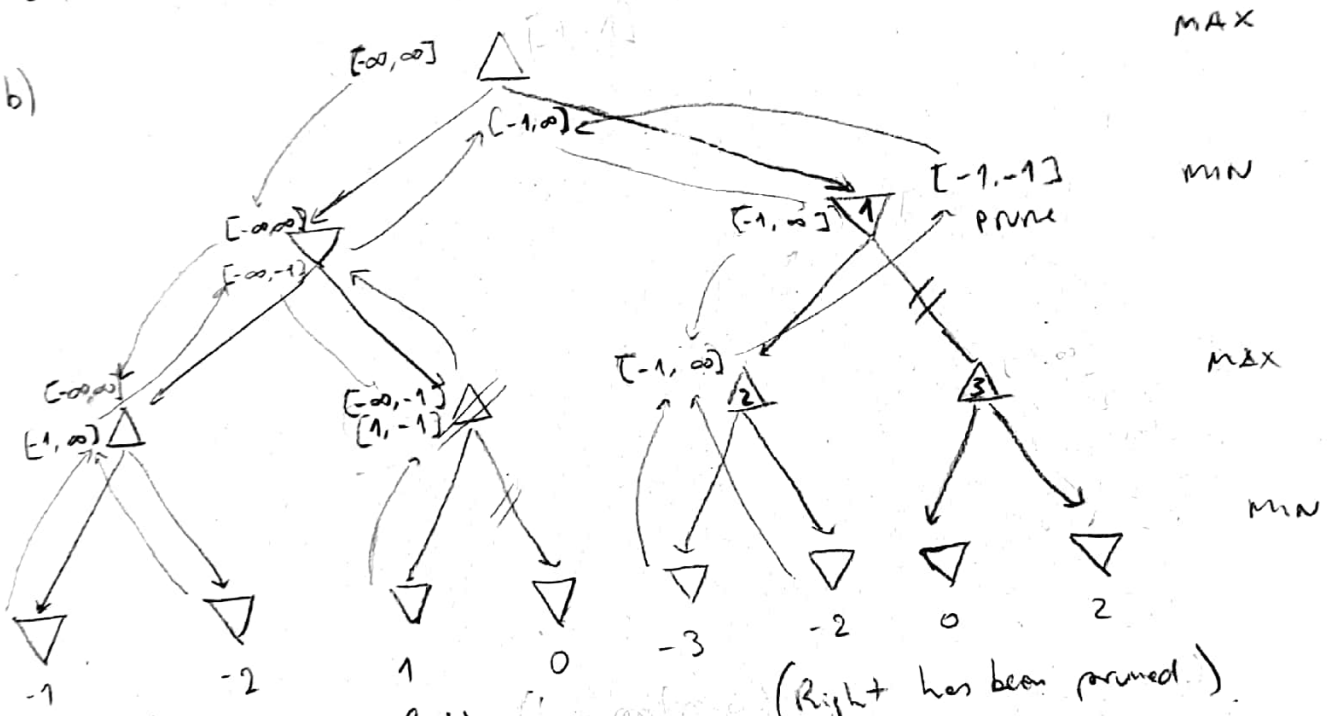 MAX
[-∞, ∞]
b)
[-1, ∞]
MIN
[-1, -1]
prune
[-∞, ∞]
[-1, ∞]
1
[-∞, -1]
MAX
[-1, ∞]
[-∞, ∞]
[-∞, -1]
[1, -1]
2
3
[-1, ∞]
MIN
-1
-2
1
0
-3
-2
0
2
(Right has been pruned.)